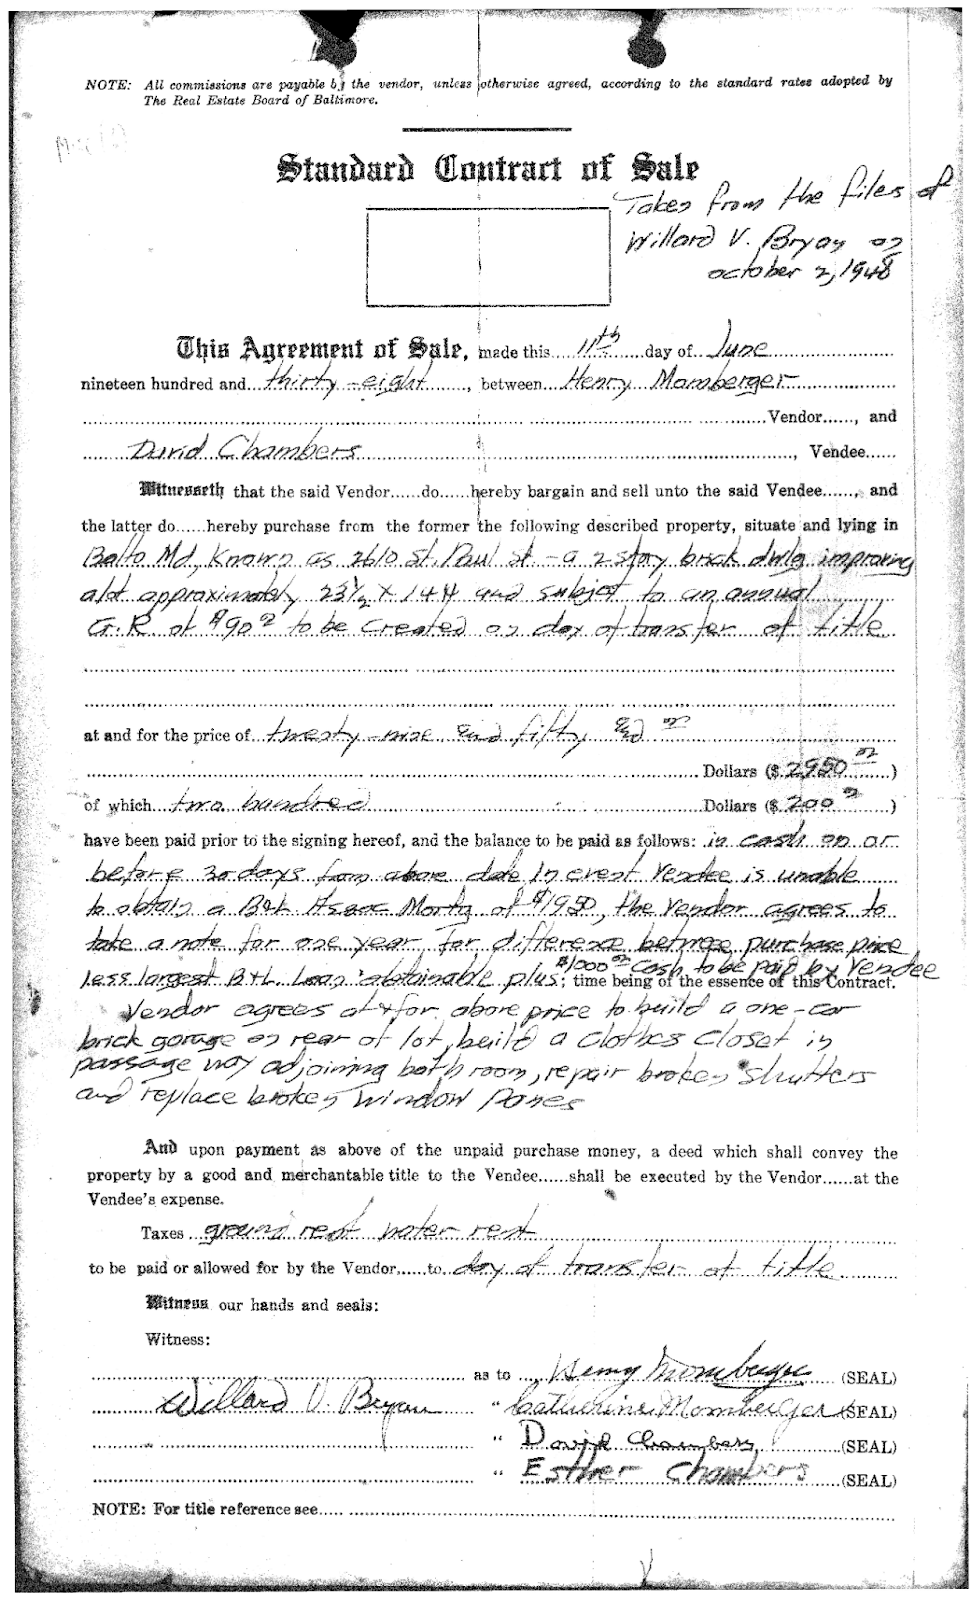 NOTE: All commissions are payable by the vendor, unless otherwise agreed, according to the standard rates adopted by
The Real Estate Board of Baltimore.
Standard Contract of Sale
Taken from the files of
Willard V. Bryan on
october 2, 1948
This Agreement of Sale, made this 11th day of June
nineteen hundred and thirty-eight, between Henry Momberger
Vendor......, and
David Chambers, Vendee......
Witnesseth that the said Vendor......do......hereby bargain and sell unto the said Vendee......, and
the latter do......hereby purchase from the former the following described property, situate and lying in
Balto Md, Known as 2610 St. Paul St - a 2 story brick dwlg improving
a lot approximately 23½ x 144 and subject to an annual
G.R. of $90 to be created on day of transfer of title
at and for the price of twenty-nine and fifty
Dollars ($ 2950)
of which two hundred Dollars ($ 200)
have been paid prior to the signing hereof, and the balance to be paid as follows: in cash on or
before 30 days from above date In event Vendee is unable
to obtain a B+L Assoc Mortg of $1950, the Vendor agrees to
take a note for one year for difference between purchase price
less largest B+L Loan obtainable plus $1000 cash to be paid by Vendee
; time being of the essence of this Contract.
Vendor agrees at + for above price to build a one-car
brick garage on rear of lot, build a clothes closet in
passage way adjoining bath room, repair broken shutters
and replace broken window panes
And upon payment as above of the unpaid purchase money, a deed which shall convey the
property by a good and merchantable title to the Vendee......shall be executed by the Vendor......at the
Vendee's expense.
Taxes ground rent water rent
to be paid or allowed for by the Vendor......to day of transfer of title
Witness our hands and seals:
Witness:
as to Henry Momberger (SEAL)
Willard V. Bryan " Catherine Momberger (SEAL)
" David Chambers (SEAL)
" Esther Chambers (SEAL)
NOTE: For title reference see